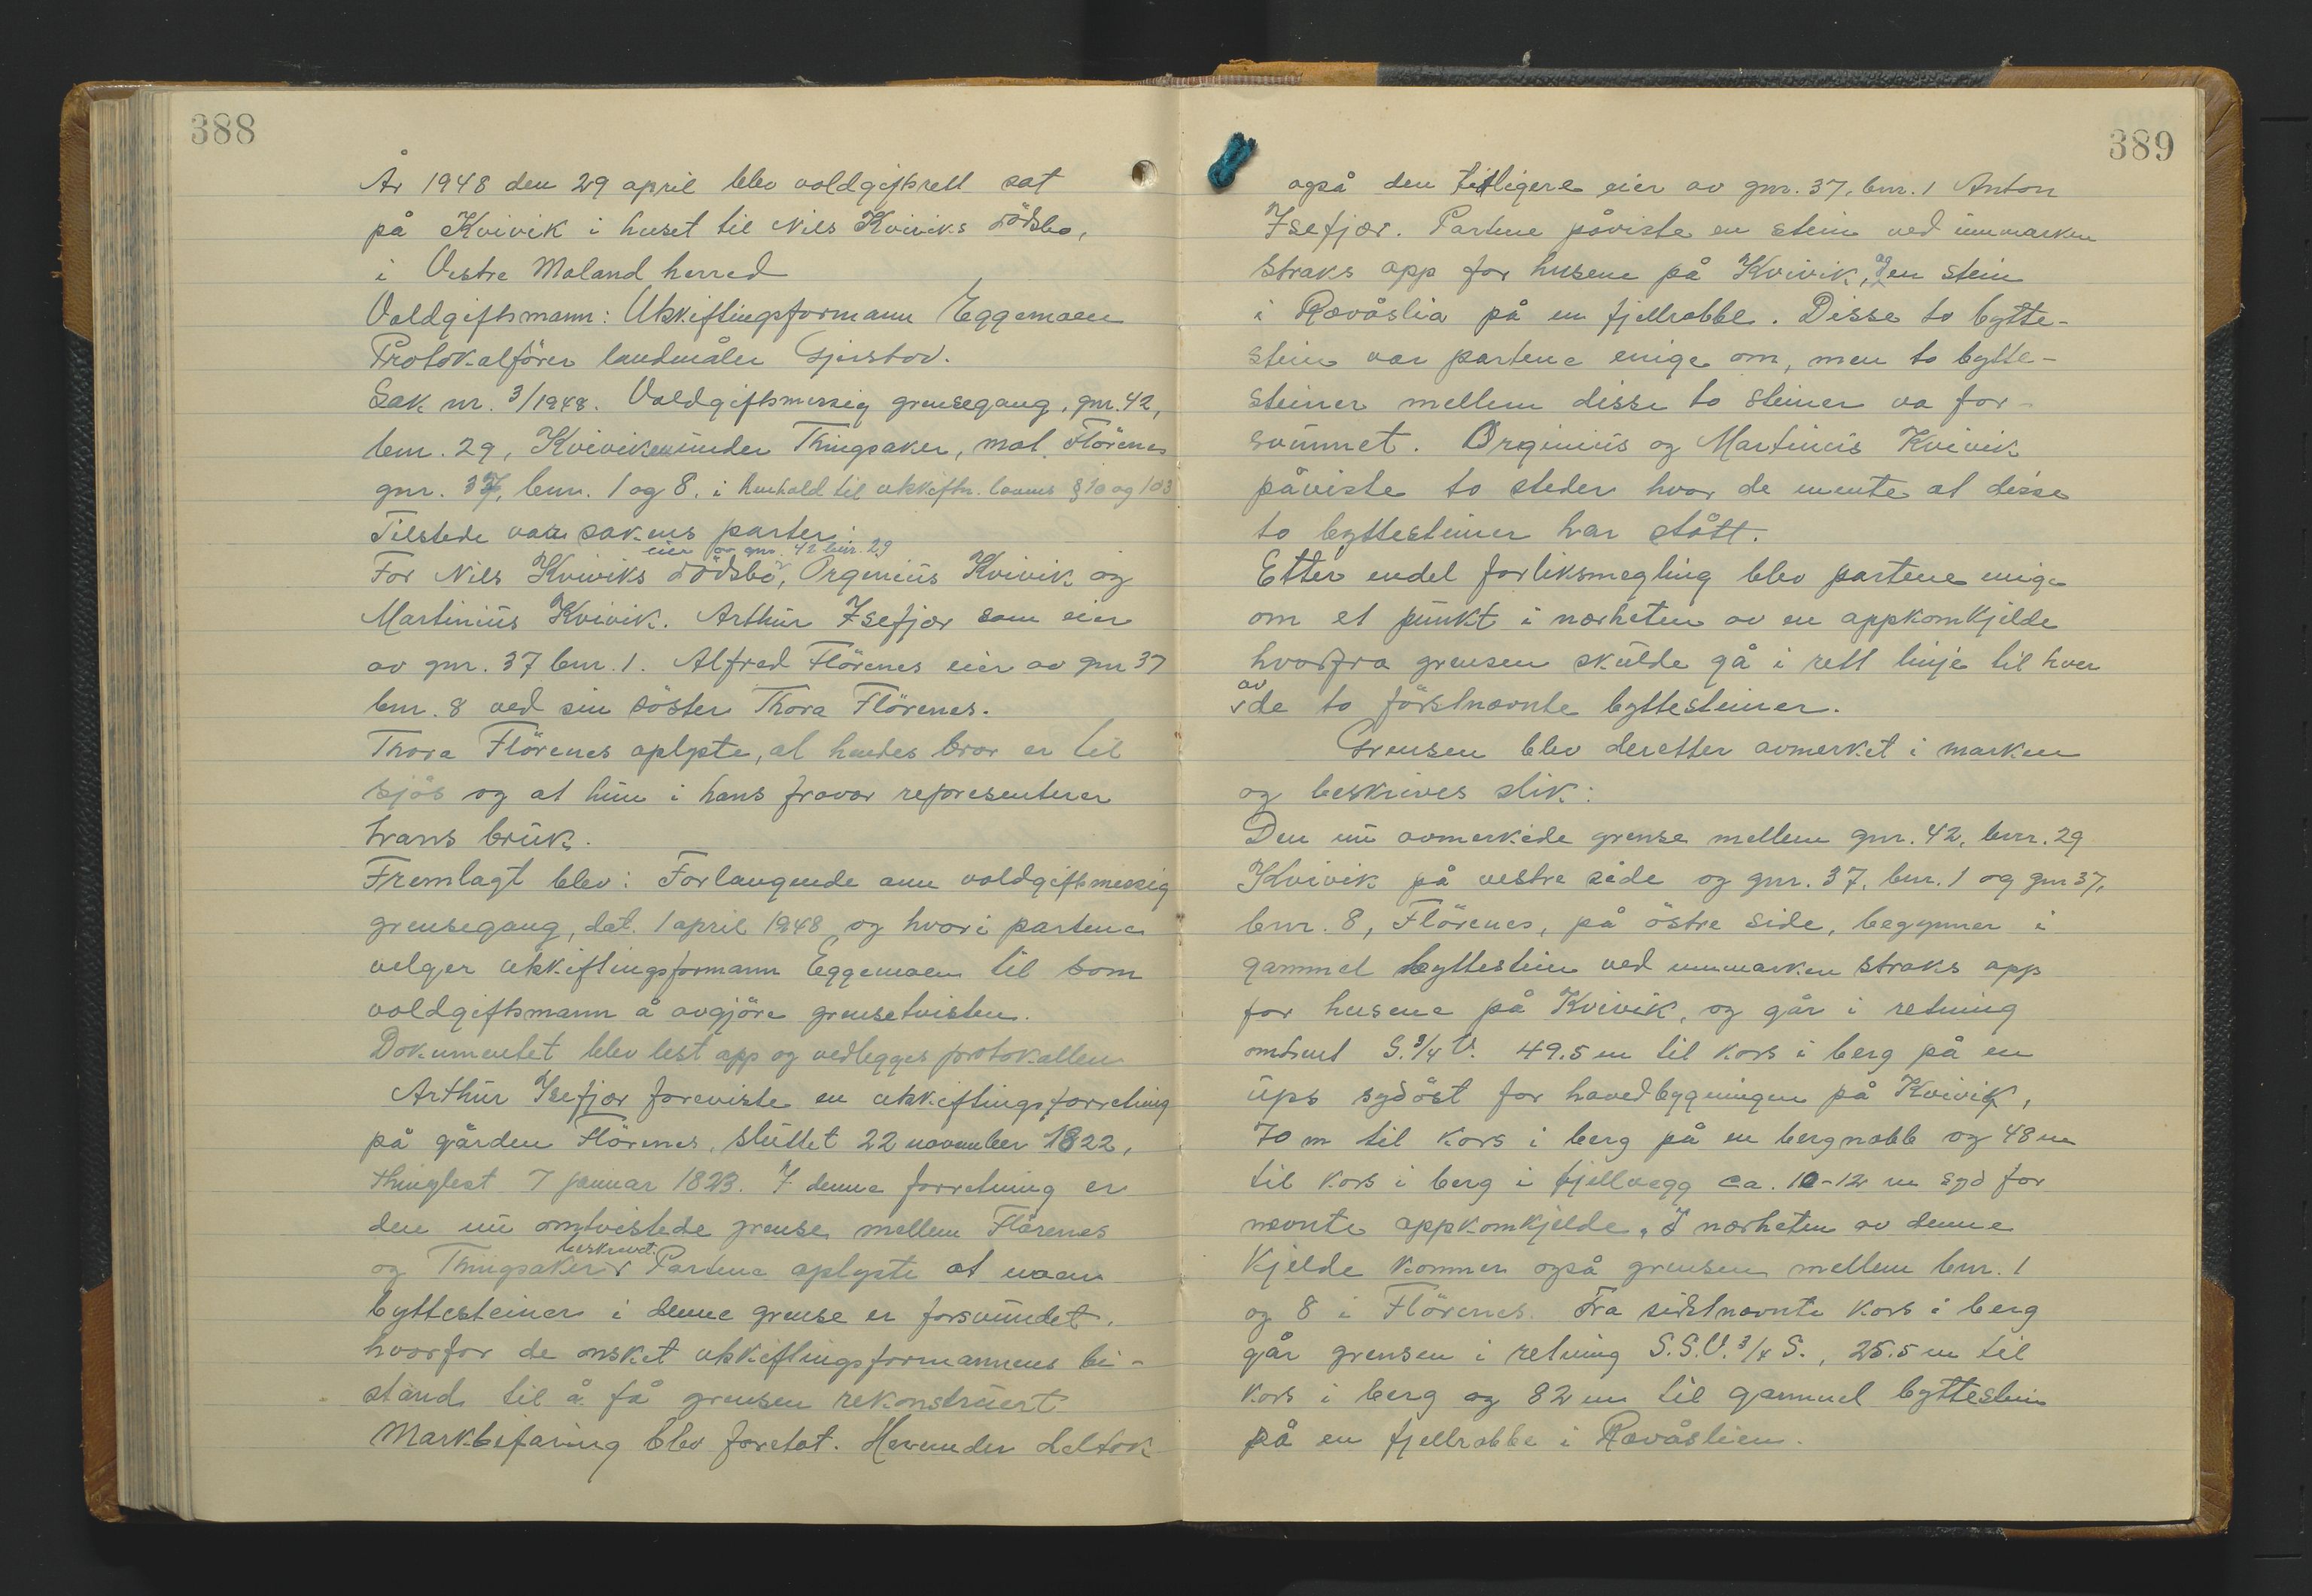 388
År 1948 den 29 april blev voldgiftsrett sat
på Kvivik i huset til Nils Kviviks dödsbo,
i Vestre Moland herred
Voldgiftsmann: Utskiftingsformann Eggemoen
Protokolförer landmåler Gjerstad.
Sak nr. 3/1948. Voldgiftsmessig grensegang, gnr. 42,
bnr. 29, Kviviken under Thingsaker, mot Flörenes
gnr. 37, bnr. 1 og 8. i henhold til utskiftn. lovens § 10 og 103
Tilstede var sakens parter:
eier av gnr. 42 bnr. 29
For Nils Kviviks dödsbo, Orgenius Kvivik og
Martinius Kvivik. Arthur Isefjær som eier
av gnr. 37 bnr. 1. Alfred Flörenes eier av gnr 37
bnr. 8 ved sin söster Thora Flörenes.
Thora Flörenes oplyste, at hendes bror er til
sjös og at hun i hans fravær representerer
hans bruk.
Fremlagt blev: Forlangende om voldgiftsmessig
grensegang, dat. 1 april 1948 og hvori partene
velger utskiftingsformann Eggemoen til som
voldgiftsmann å avgjöre grensetvisten.
Dokumentet blev lest opp og vedlegges protokollen
Arthur Isefjær foreviste en utskiftingsforretning
på gården Flörenes, sluttet 22 november 1822,
thinglest 7 januar 1823. I denne forretning er
den nu omtvistede grense mellem Flörenes
beskrevet.
og Thingsaker v Partene oplyste at noen
byttesteiner i denne grense er forsvundet,
hvorfor de önsket utskiftingsformannens bi-
stand til å få grensen rekonstruert
Markbefaring blev foretat. Herunder deltok
389
også den tidligere eier av gnr. 37, bnr. 1 Anton
Isefjær. Partene påviste en stein ved innmarken
straks opp for husene på Kvivik, og en stein
i Rævåslia på en fjellrabbe. Disse to bytte-
stein var partene enige om, men to bytte-
steiner mellem disse to steiner va for-
svunnet. Orginius og Martinius Kvivik
påviste to steder hvor de mente at disse
to byttesteiner har stått.
Etter endel forliksmegling blev partene enige
om et punkt i nærheten av en oppkomkjelde
hvorfra grensen skulde gå i rett linje til hver
av
v de to förstnævnte byttesteiner.
Grensen blev deretter avmerket i marken
og beskrives slik:
Den nu avmerkede grense mellem gnr. 42, bnr. 29
Kvivik på vestre side og gnr. 37, bnr. 1 og gnr 37,
bnr. 8, Flörenes, på östre side, begynner i
gammel byttestein ved innmarken straks opp
for husene på Kvivik, og går i retning
omtrent S. 3/4 V. 49.5 m til kors i berg på en
ups sydöst for hovedbygningen på Kvivik,
70 m til kors i berg på en bergnabb og 48 m
til kors i berg i fjellvegg ca. 10-12 m syd for
nevnte oppkomkjelde. I nærheten av denne
kjelde kommer også grensen mellem bnr. 1
og 8 i Flörenes. Fra sistnævnte kors i berg
går grensen i retning S.S.V. 3/4 S., 25.5 m til
kors i berg og 82 m til gammel byttestein
på en fjellrabbe i Rævåslien.